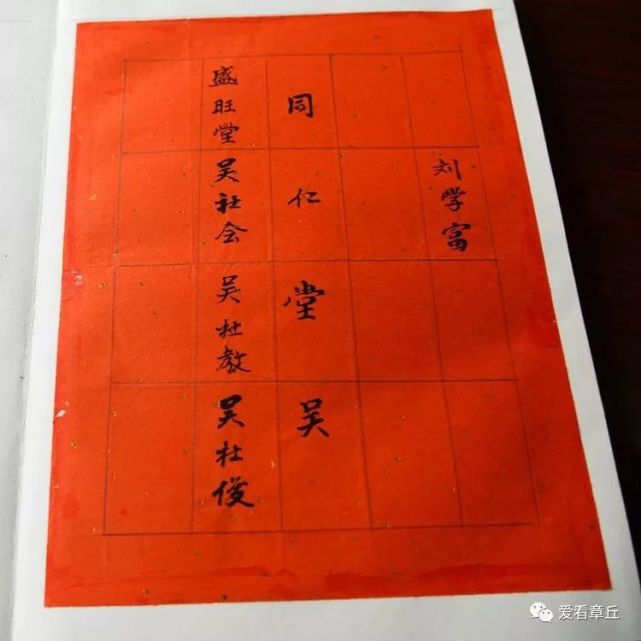 刘学富
同仁堂吴
盛旺堂
吴社会
吴社教
吴社俊
爱看章丘